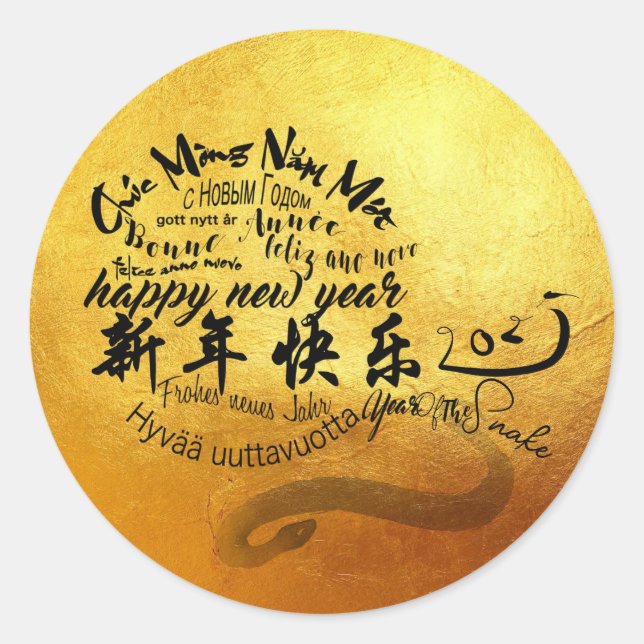 Chúc Mừng Năm Mới
с Новым Годом
gott nytt år
Bonne Année
feliz ano novo
felice anno nuovo
happy new year
新年快乐 2025
Frohes neues Jahr
Year Of The Snake
Hyvää uuttavuotta